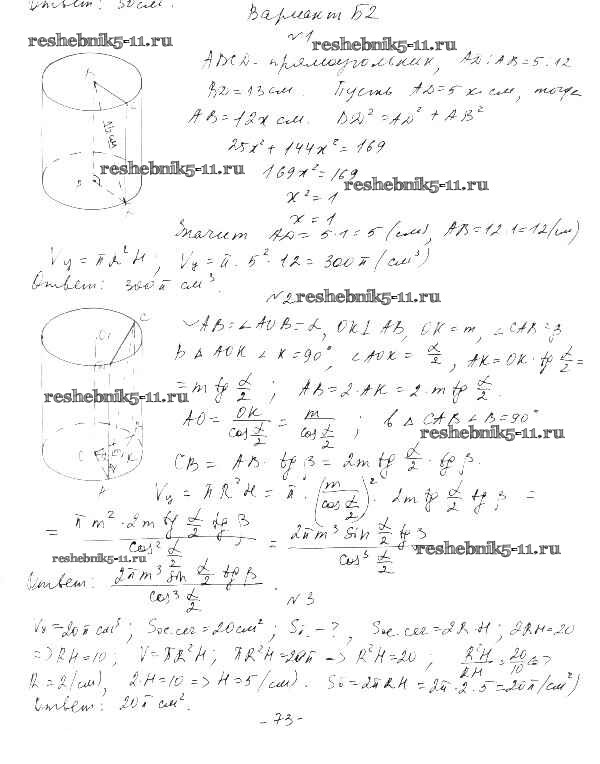 Ответ: 50 см.
Вариант Б2
№1
reshebnik5-11.ru
reshebnik5-11.ru
ABCD - прямоугольник, AD:AB=5:12
BD=13 см. Пусть AD=5x см, тогда
AB=12x см. BD²=AD²+AB²
25x²+144x²=169
reshebnik5-11.ru
169x²=169
reshebnik5-11.ru
x²=1
x=1
Значит AD=5·1=5 (см), AB=12·1=12(см)
Vц=πR²H; Vц=π·5²·12=300π(см³)
Ответ: 300π см³.
№2
reshebnik5-11.ru
◡AB=∠AOB=α, OK⊥AB, OK=m, ∠CAB=β
В △AOK ∠K=90°, ∠AOK=α/2, AK=OK·tg α/2=
=m tg α/2; AB=2·AK=2·m tg α/2.
reshebnik5-11.ru
AO=OK/cos α/2=m/cos α/2; в △CAB ∠B=90°
reshebnik5-11.ru
CB=AB·tg β=2m tg α/2·tg β.
Vц=πR²H=π·(m/cos α/2)²·2m tg α/2 tg β=
=πm²·2m tg α/2 tg β/cos² α/2;=2πm³ sin α/2 tg β/cos³ α/2
reshebnik5-11.ru
reshebnik5-11.ru
Ответ: 2πm³ sin α/2 tg β/cos³ α/2
№3
Vц=20π см³; Sос.сеч=20см²; Sб.-?, Sос.сеч=2R·H; 2RH=20
=>RH=10; V=πR²H; πR²H=20π => R²H=20; R²H/RH=20/10 =>
R=2(см), 2·H=10 => H=5(см). Sб=2πRH=2π·2·5=20π(см²)
Ответ: 20π см².
-73-